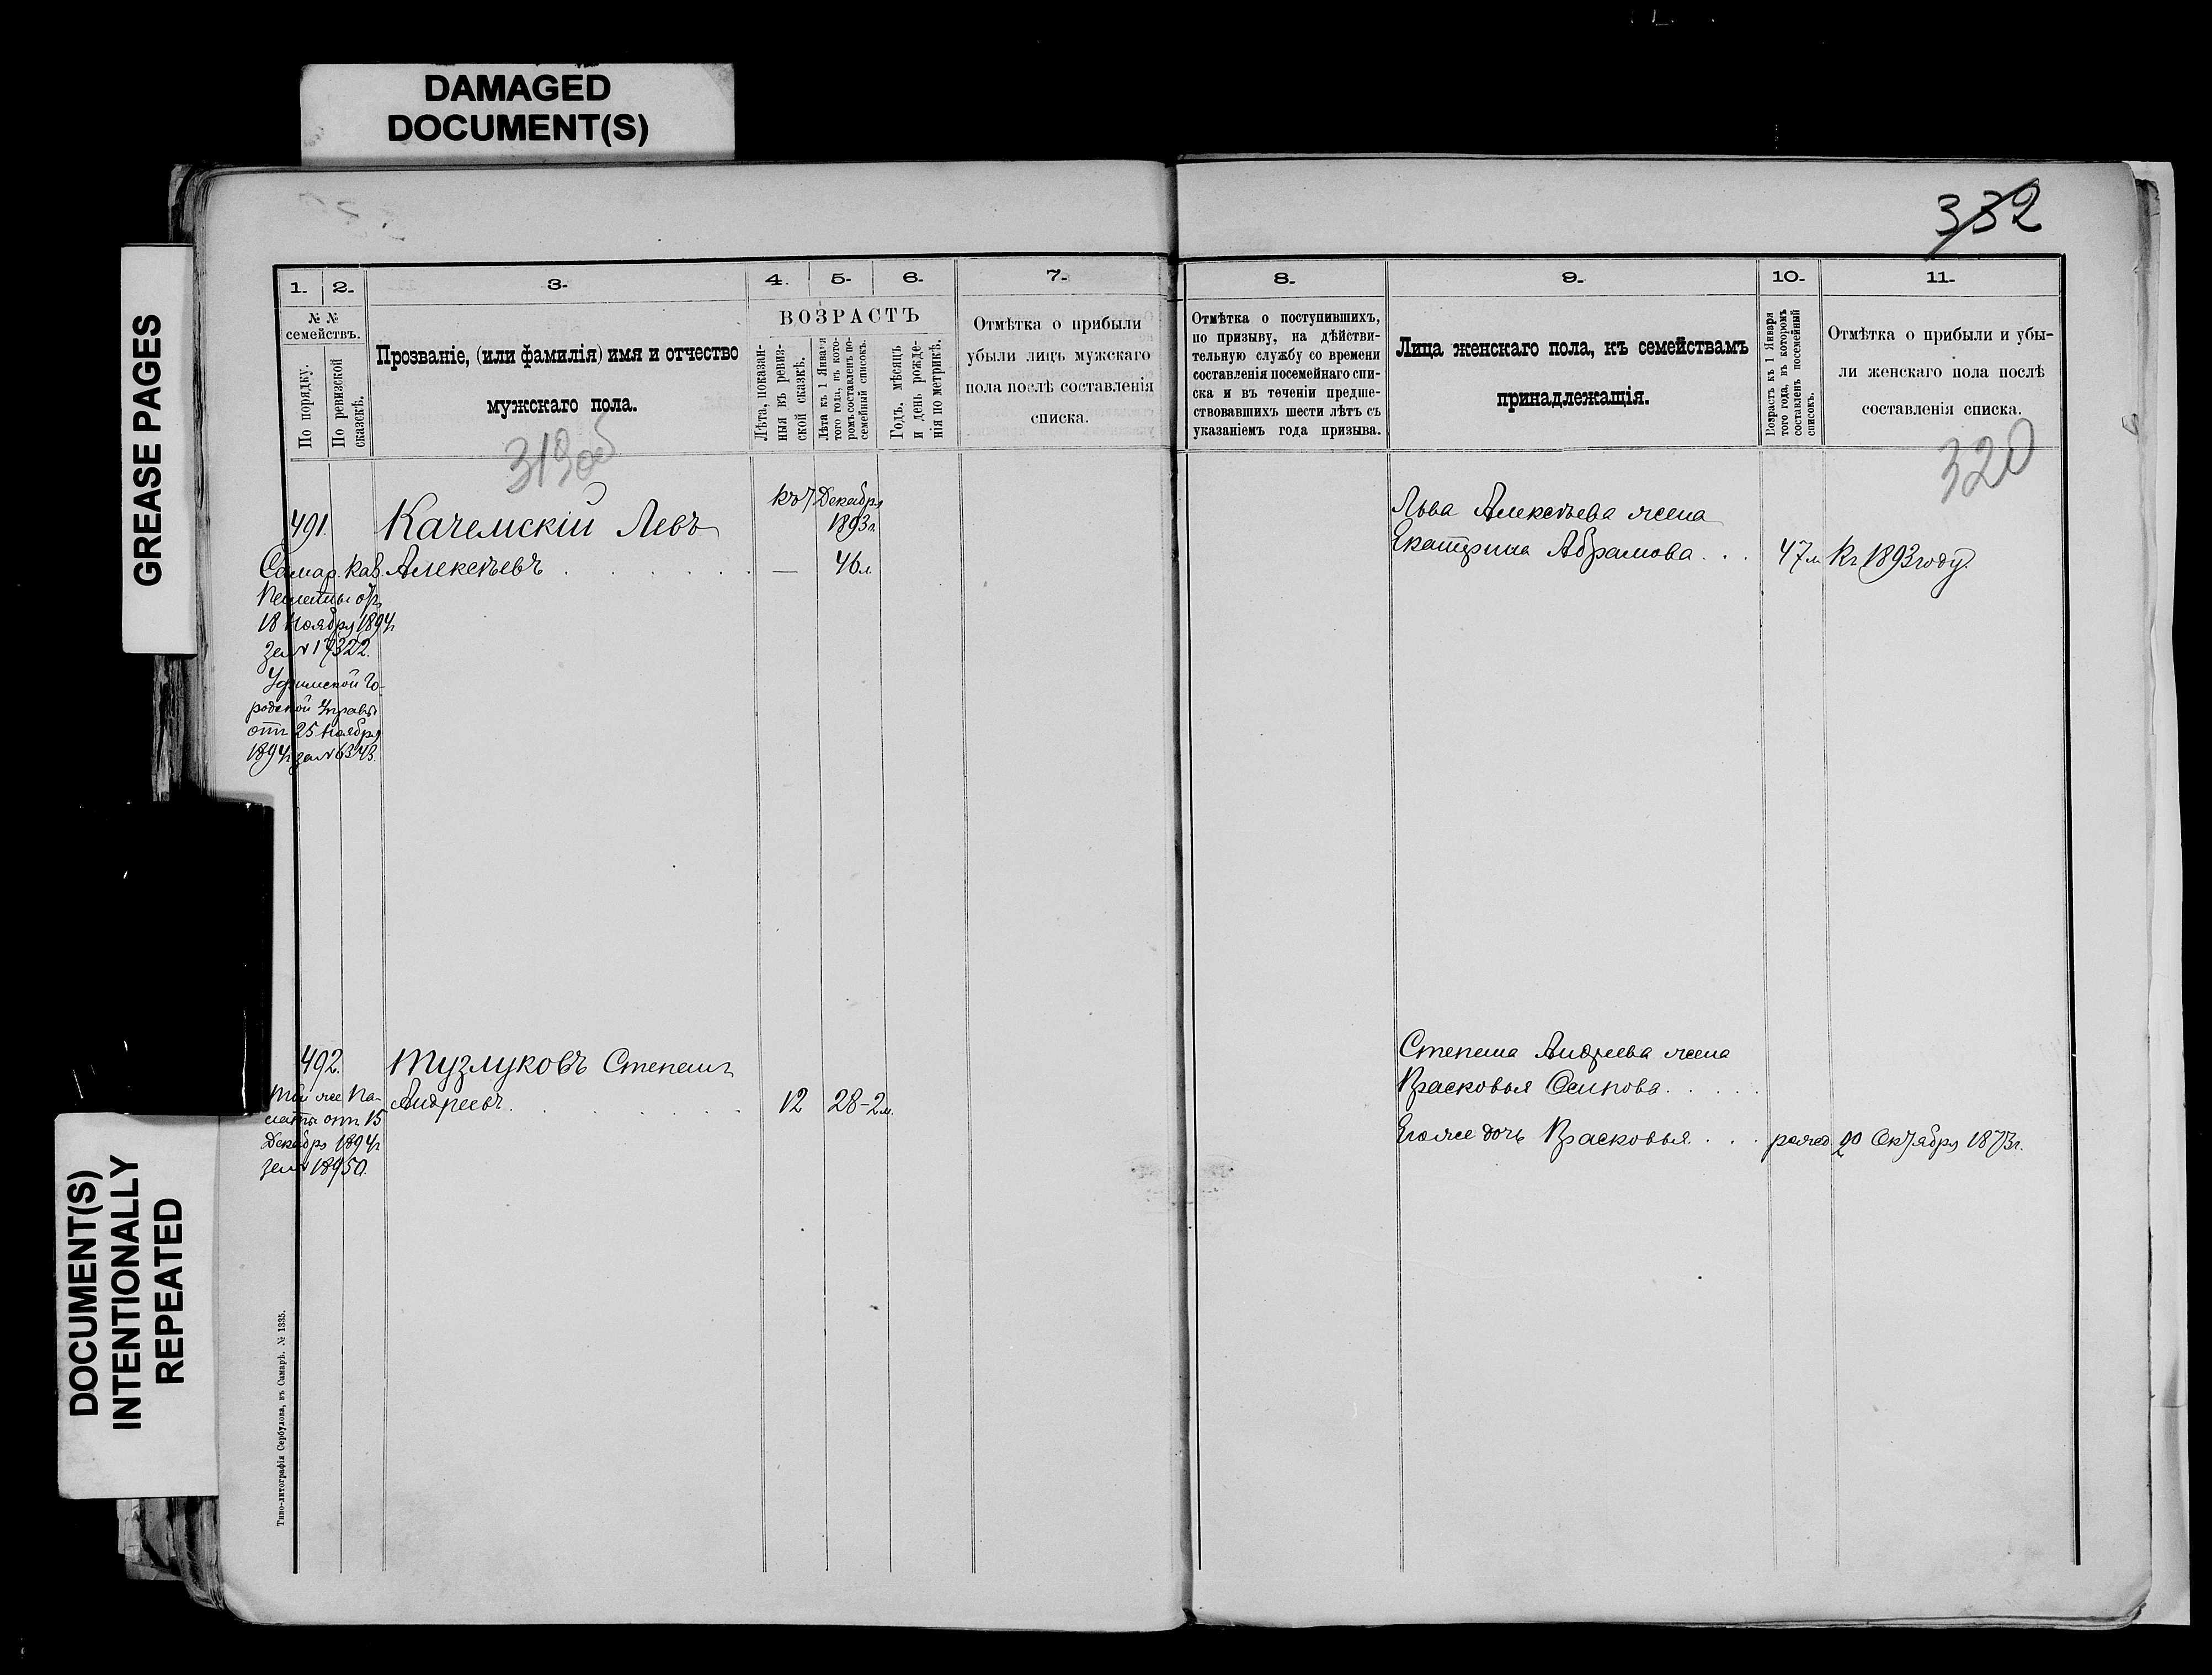 DAMAGED
DOCUMENT(S)
GREASE PAGES
DOCUMENT(S)
INTENTIONALLY
REPEATED
332
1. 2. 3. 4. 5. 6. 7.
№ №
семействъ.
По порядку.
По ревизской
сказкѣ.
Прозваніе, (или фамилія) имя и отчество
мужскаго пола.
ВОЗРАСТЪ
Лѣта, показан-
ныя въ ревиз-
ской сказкѣ.
Лѣта къ 1 Января
того года, въ кото-
ромъ составленъ по-
семейный списокъ.
Годъ, мѣсяцъ
и день рожде-
нія по метрикѣ.
Отмѣтка о прибыли
убыли лицъ мужскаго
пола послѣ составленія
списка.
319об
491.
Качемскій Левъ
Алексѣевъ
къ 7 Декабря
1893г.
— 46л.
Самар. Каз.
Палаты отъ
18 Ноября 1894г
за № 17322.
Уфимской Го-
родской Управы
отъ 25 Ноября
1894г за № 6343.
492.
Тузлуковъ Степанъ
Андреевъ. 12 28-2м.
Той же Па-
латы отъ 15
Декабря 1894г
за № 18950.
Типо-литографія Сербулова, въ Самарѣ. № 1335.
8. 9. 10. 11.
Отмѣтка о поступившихъ,
по призыву, на дѣйстви-
тельную службу со времени
составленія посемейнаго спи-
ска и въ теченіи предше-
ствовавшихъ шести лѣтъ съ
указаніемъ года призыва.
Лица женскаго пола, къ семействамъ
принадлежащія.
Возрастъ къ 1 Января
того года, въ которомъ
составленъ посемейный
списокъ.
Отмѣтка о прибыли и убы-
ли женскаго пола послѣ
составленія списка.
320
Льва Алексѣева жена
Екатерина Абрамова. . . 47л Къ 1893 году.
Степана Андреева жена
Прасковья Осипова. . . .
Его же дочь Прасковья. . . рожд. 20 Октября 1873г.